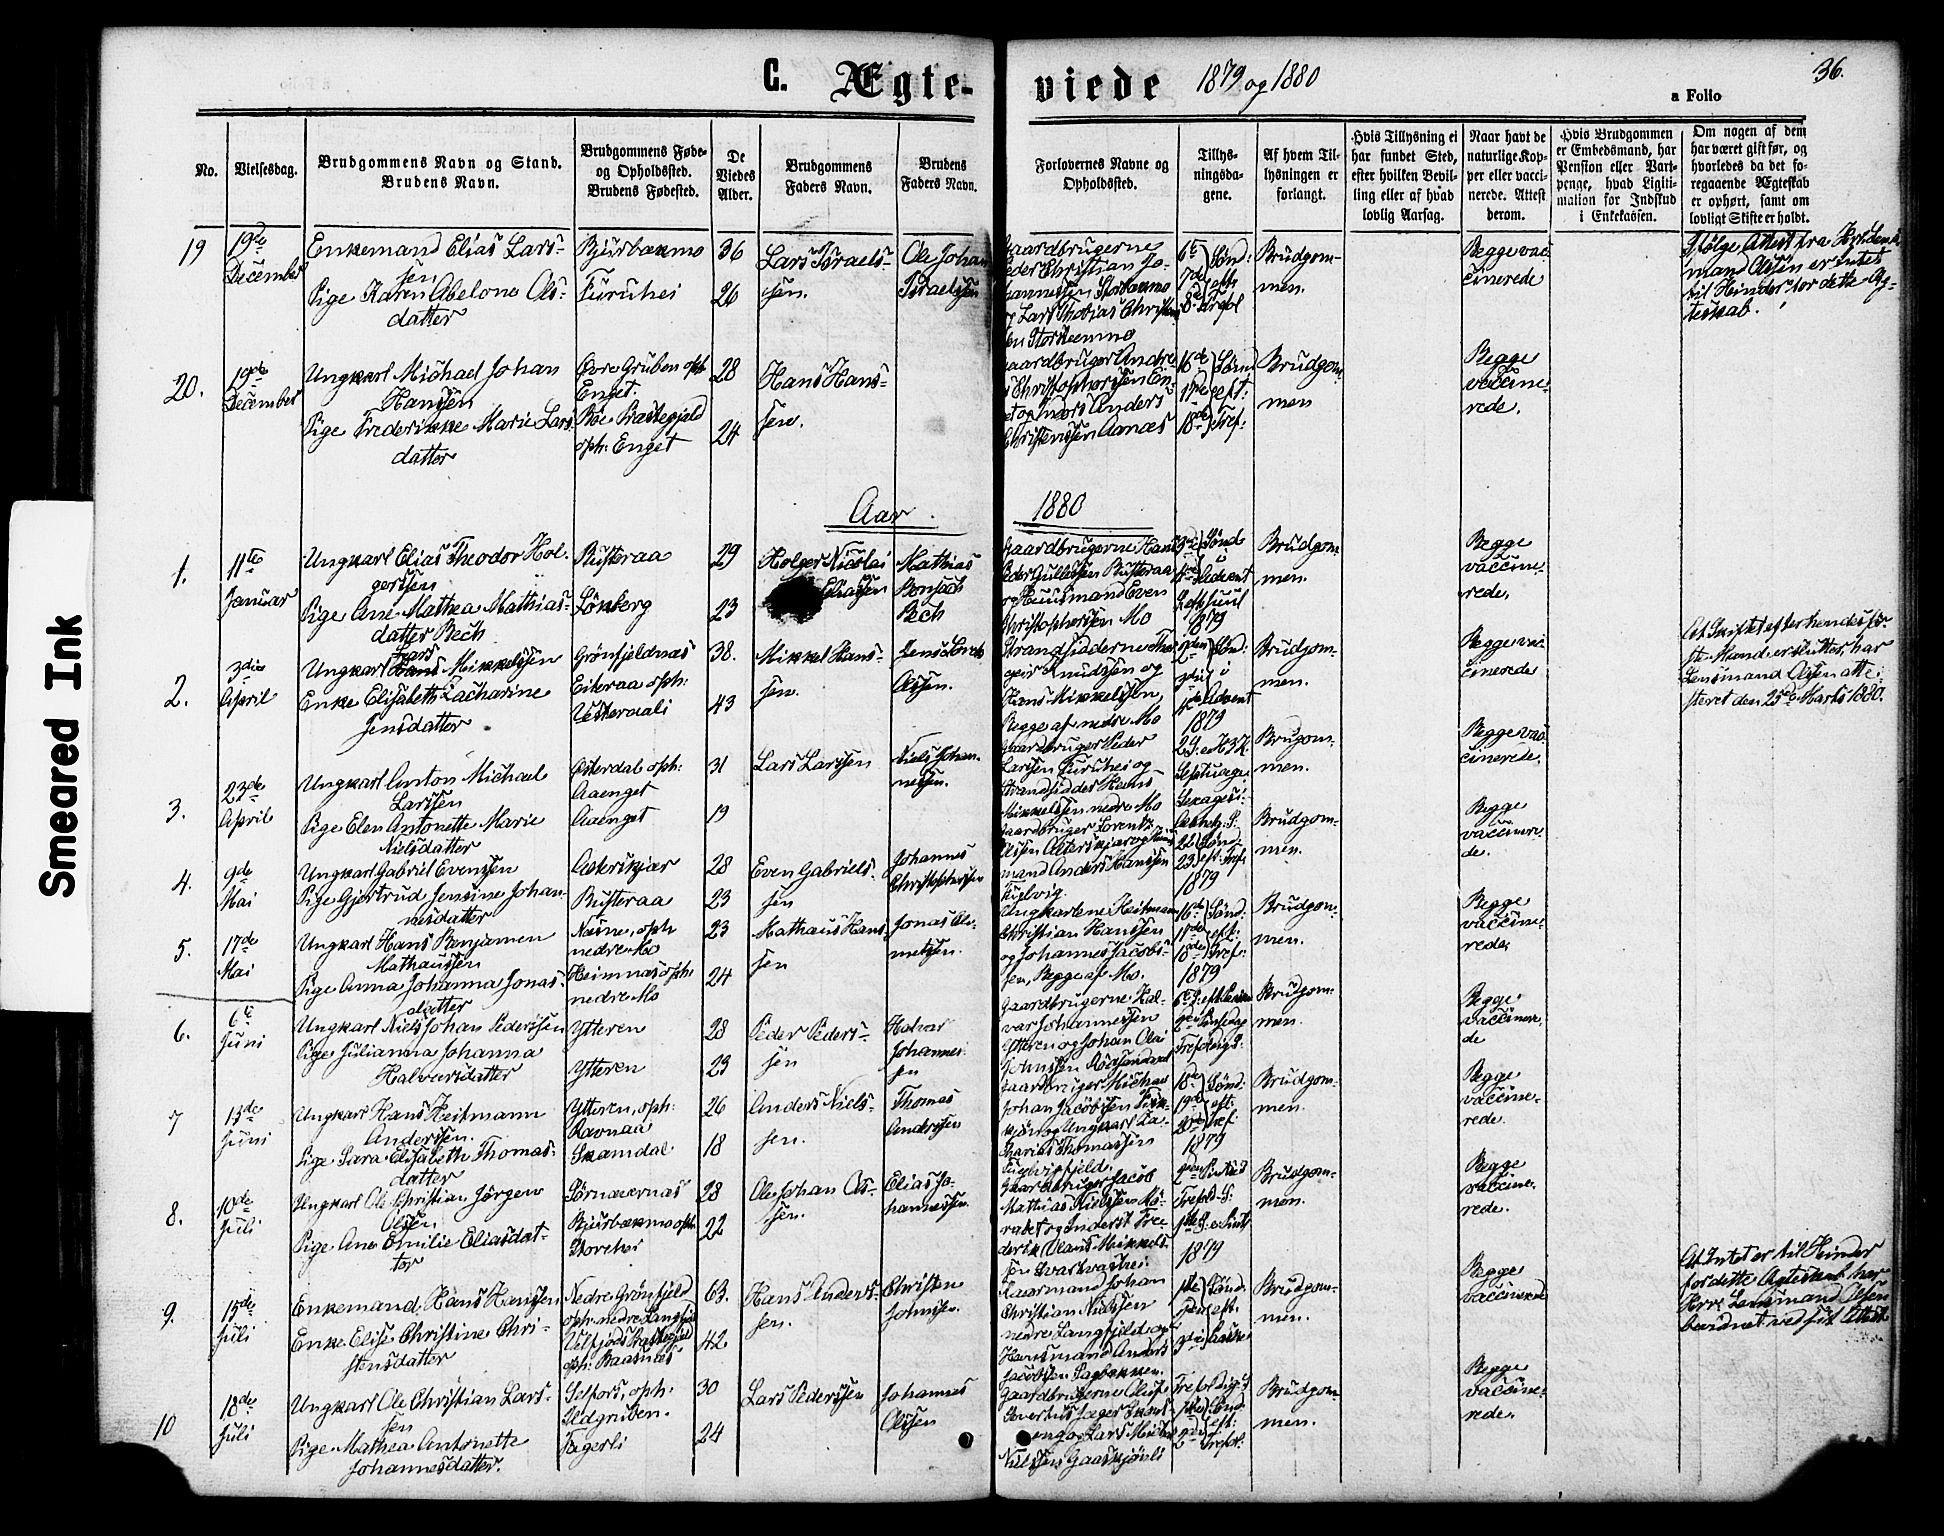 C. Ægte-
viede 1879 og 1880
36.
a Folio
Smeared Ink
No.
Vielsesdag.
Brudgommens Navn og Stand.
Brudens Navn.
Brudgommens Føde-
og Opholdssted.
Brudens Fødested.
De
Viedes
Alder.
Brudgommens
Faders Navn.
Brudens
Faders Navn.
Forlovernes Navne og
Opholdssted.
Tillys-
ningsda-
gene.
Af hvem Til-
lysningen er
forlangt.
Hvis Tillysning ei
har fundet Sted,
efter hvilken Bevil-
ling eller af hvad
lovlig Aarsag.
Naar havt de
naturlige Kop-
per eller vacci-
nerede. Attest
derom.
Hvis Brudgommen
er Embedsmand, har
Pension eller Vart-
penge, hvad Ligiti-
mation for Indskud
i Enkekassen.
Om nogen af dem
har været gift før, og
hvorledes da det fo-
regaaende Ægteskab
er ophørt, samt om
lovligt Skifte er holdt.
19
19de
December
Enkemand Elias Lars-
sen
Pige Karen Abelone Ols-
datter
Bjursbækmo
Furuhei
36
26
Lars Israels-
sen.
Ole Johan
Israelssen
Gaardbrugerne
Peder Christian Jo-
hannessen Storbækmo
og Lars Thobias Christian
sen
Brudgom-
men.
Begge vac-
cinerede
Ifølge Attest fra
mand Olsen er intet
til Hinder for dette Æg-
teskab.
20.
19de
December
Ungkarl Michael Johan
Hanssen
Pige Frederikke Marie Lars-
datter
Øvre Gruben oph
Enget.
Bøe Præstegjeld
oph: Enget
28
24
Hans Hans-
sen.
Gaardbruger Andre
as Christophersen En-
get og Anders
Christenssen Aanæs
16de Sønd
17de eft:
18de Tref:
Brudgom-
men
Begge
vaccine-
rede.
Aar 1880
1.
11te
Januar
Ungkarl Elias Theodor Hol-
gerssen
Pige Ane Mathea Mathias-
datter Bech
Rufteraa
Lønberg
29
23
Holger Nicolai
Eliassen
Mathias
Bonsach
Bech
Gaardbrugerne Hans
Peder Gullessen Rufteraa
og Huusmand Even
Christophersen Mo
1879
Brudgom-
men.
Begge
vaccine-
rede.
2.
3die
April
Ungkarl Lars Mikkelssen
Enke Elisabeth Zacharine
Jensdatter
Grønfjeldnæs
Eiteraa oph:
Vesteraali
38.
43
Mikkel Hans-
sen.
Jens
Olssen.
Strandsidderne Tho
geir Knudssen og
Hans Mikkelssen,
Begge af nedre Mo
Advent
1879
Brudgom-
men.
Begge vac-
cinerede
At Skiftet efter hendes før-
ste Mand er sluttet, har
Lensmand Olsen atte-
steret den 25de Marts 1880.
3.
23de
April
Ungkarl Anton Michael
Larssen
Pige Elen Antonette Marie
Nielsdatter
Østerdal oph:
Aaenget
Aaenget
31
19
Lars Larssen
Niels Johan-
nessen.
Gaardbruger Peder
Larssen Furuhei og
Strandsidder Hans
Mikkelssen nedre Mo
Brugom-
men.
Begge vac-
cinerede.
4.
9de
Mai
Ungkarl Gabriel Evenssen
Pige Gjertrud Jensine Johan-
nesdatter
Alterskjær
Rufteraa
28
23
Even Gabriels-
sen
Johannes
Christophersen
Gaardbruger Lorents
Olssen Alterskjær og Huus
mand Anders Hanssen
1879
Brudgom-
men.
Begge
vaccinere-
de.
5.
17de
Mai
Ungkarl Hans Benjamen
Mathaussen
Pige Anna Johanna Jonas-
datter
Næsne, oph
nedre Mo
Heimnæs oph:
nedre Mo
23
24
Mathaus Hans-
sen
Jonas Cle-
metssen.
Ungkarlene Heitmann
Christian Hanssen
og Johannes Jacobs-
sen, Begge af Mo.
16de Sønd:
17de eft:
18de Tref:
1879
Brudgom-
men.
Begge
vaccine-
rede.
6.
6te
Juni
Ungkarl Niels Johan Pederssen
Pige Julianna Johanna
Halvarsdatter
Ytteren
Ytteren
28
23
Peder Peders-
sen
Halvar
Johannes-
sen
Gaardbrugerne Hal-
var Johannessen
Ytteren og Johan Olai
Johnssen
Brudgom-
men.
Begge
vaccinere-
de
7
13de
Juni
Ungkarl Hans Heitmann
Anderssen.
Pige Sara Elisabeth Thomas-
datter
Ytteren, oph:
Ravnaa
Skamdal
26
18
Anders Niels-
sen.
Thomas
Andersen
Gaardbruger Michael
Johan Jacobssen
og Ungkarl Za-
charias Thomassen
18de Sønd:
19de eft.
20de Tref.
1879
Brudgom-
men.
Begge
vaccine-
rede.
8.
10de
Juli
Ungkarl Ole Christian Jørgen
Olssen
Pige Ane Emilie Eliasdat-
ter
Sørnævernæs
Bjursbækmo oph:
Storehei
28
22
Ole Johan Ols-
sen.
Elias Jo-
hannessen.
Gaardbruger Jacob
Mathias Nielssen
og Inderst Fre-
derik Olaus Mikkels-
sen
1879
Brudgom-
men.
Begge
vaccine-
rede.
9.
15de
Juli
Enkemand Hans Hanssen
Enke Elise Christine Chri-
stensdatter
Nedre Grønfjeld
oph: nedre Langfjeld
Velfjords Præstegjeld
oph: Baasnæs
63.
42
Hans Anders-
sen.
Christen
Johnsen.
Kaarmand Johan
Christian Nilssen
nedre Langfjeld og
Huusmand Anders
Jacobssen Sagbakken.
Brudgom-
men.
Begge
vaccinerede
At Intet er til Hinder
for dette Ægteskab har
Herr Lensmand Olsen
bevidnet ved sit Attest
10
18de
Juli
Ungkarl Ole Christian Lars-
sen
Pige Mathea Antonette
Johannesdatter.
Selfors, oph:
Ildgruben.
Fagerli
30
24
Lars Pederssen
Johannes
Olssen
Gaardbrugerne Oluf
og Lars Michael
Nielssen Gaaskjønli
Brudgom-
men.
Begge
vaccine-
rede.